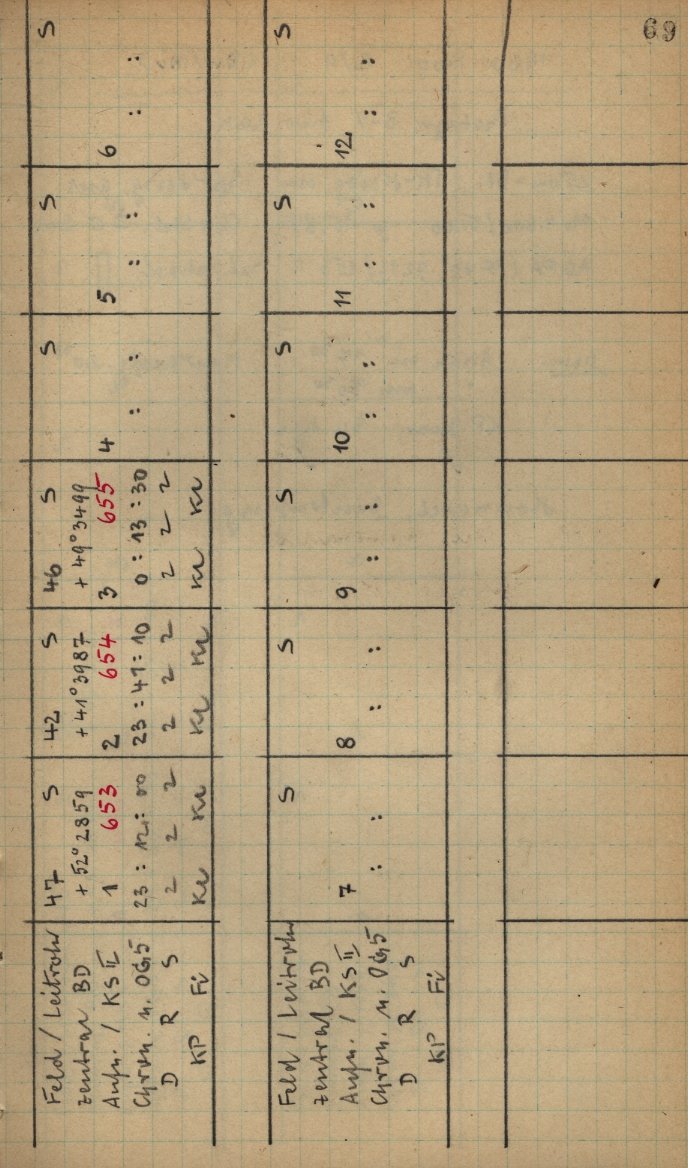 69
Feld / Leitrohr 47 S 42 S 46 S S S S
Zentral BD + 52° 2859 + 41° 3987 + 49° 3499
Aufn. / KS II 1 653 2 654 3 655 4 5 6
Chron. n. 06,5 23 : 12 : 00 23 : 41 : 10 0 : 13 : 30 : : : : : :
D R S 2 2 2 2 2 2 2 2 2
KP Fi Kr Kr Kr Kr Kr Kr
Feld / Leitrohr S S S S S S
Zentral BD
Aufn. / KS II 7 8 9 10 11 12
Chron. n. 06,5 : : : : : : : : : : : :
D R S
KP Fi